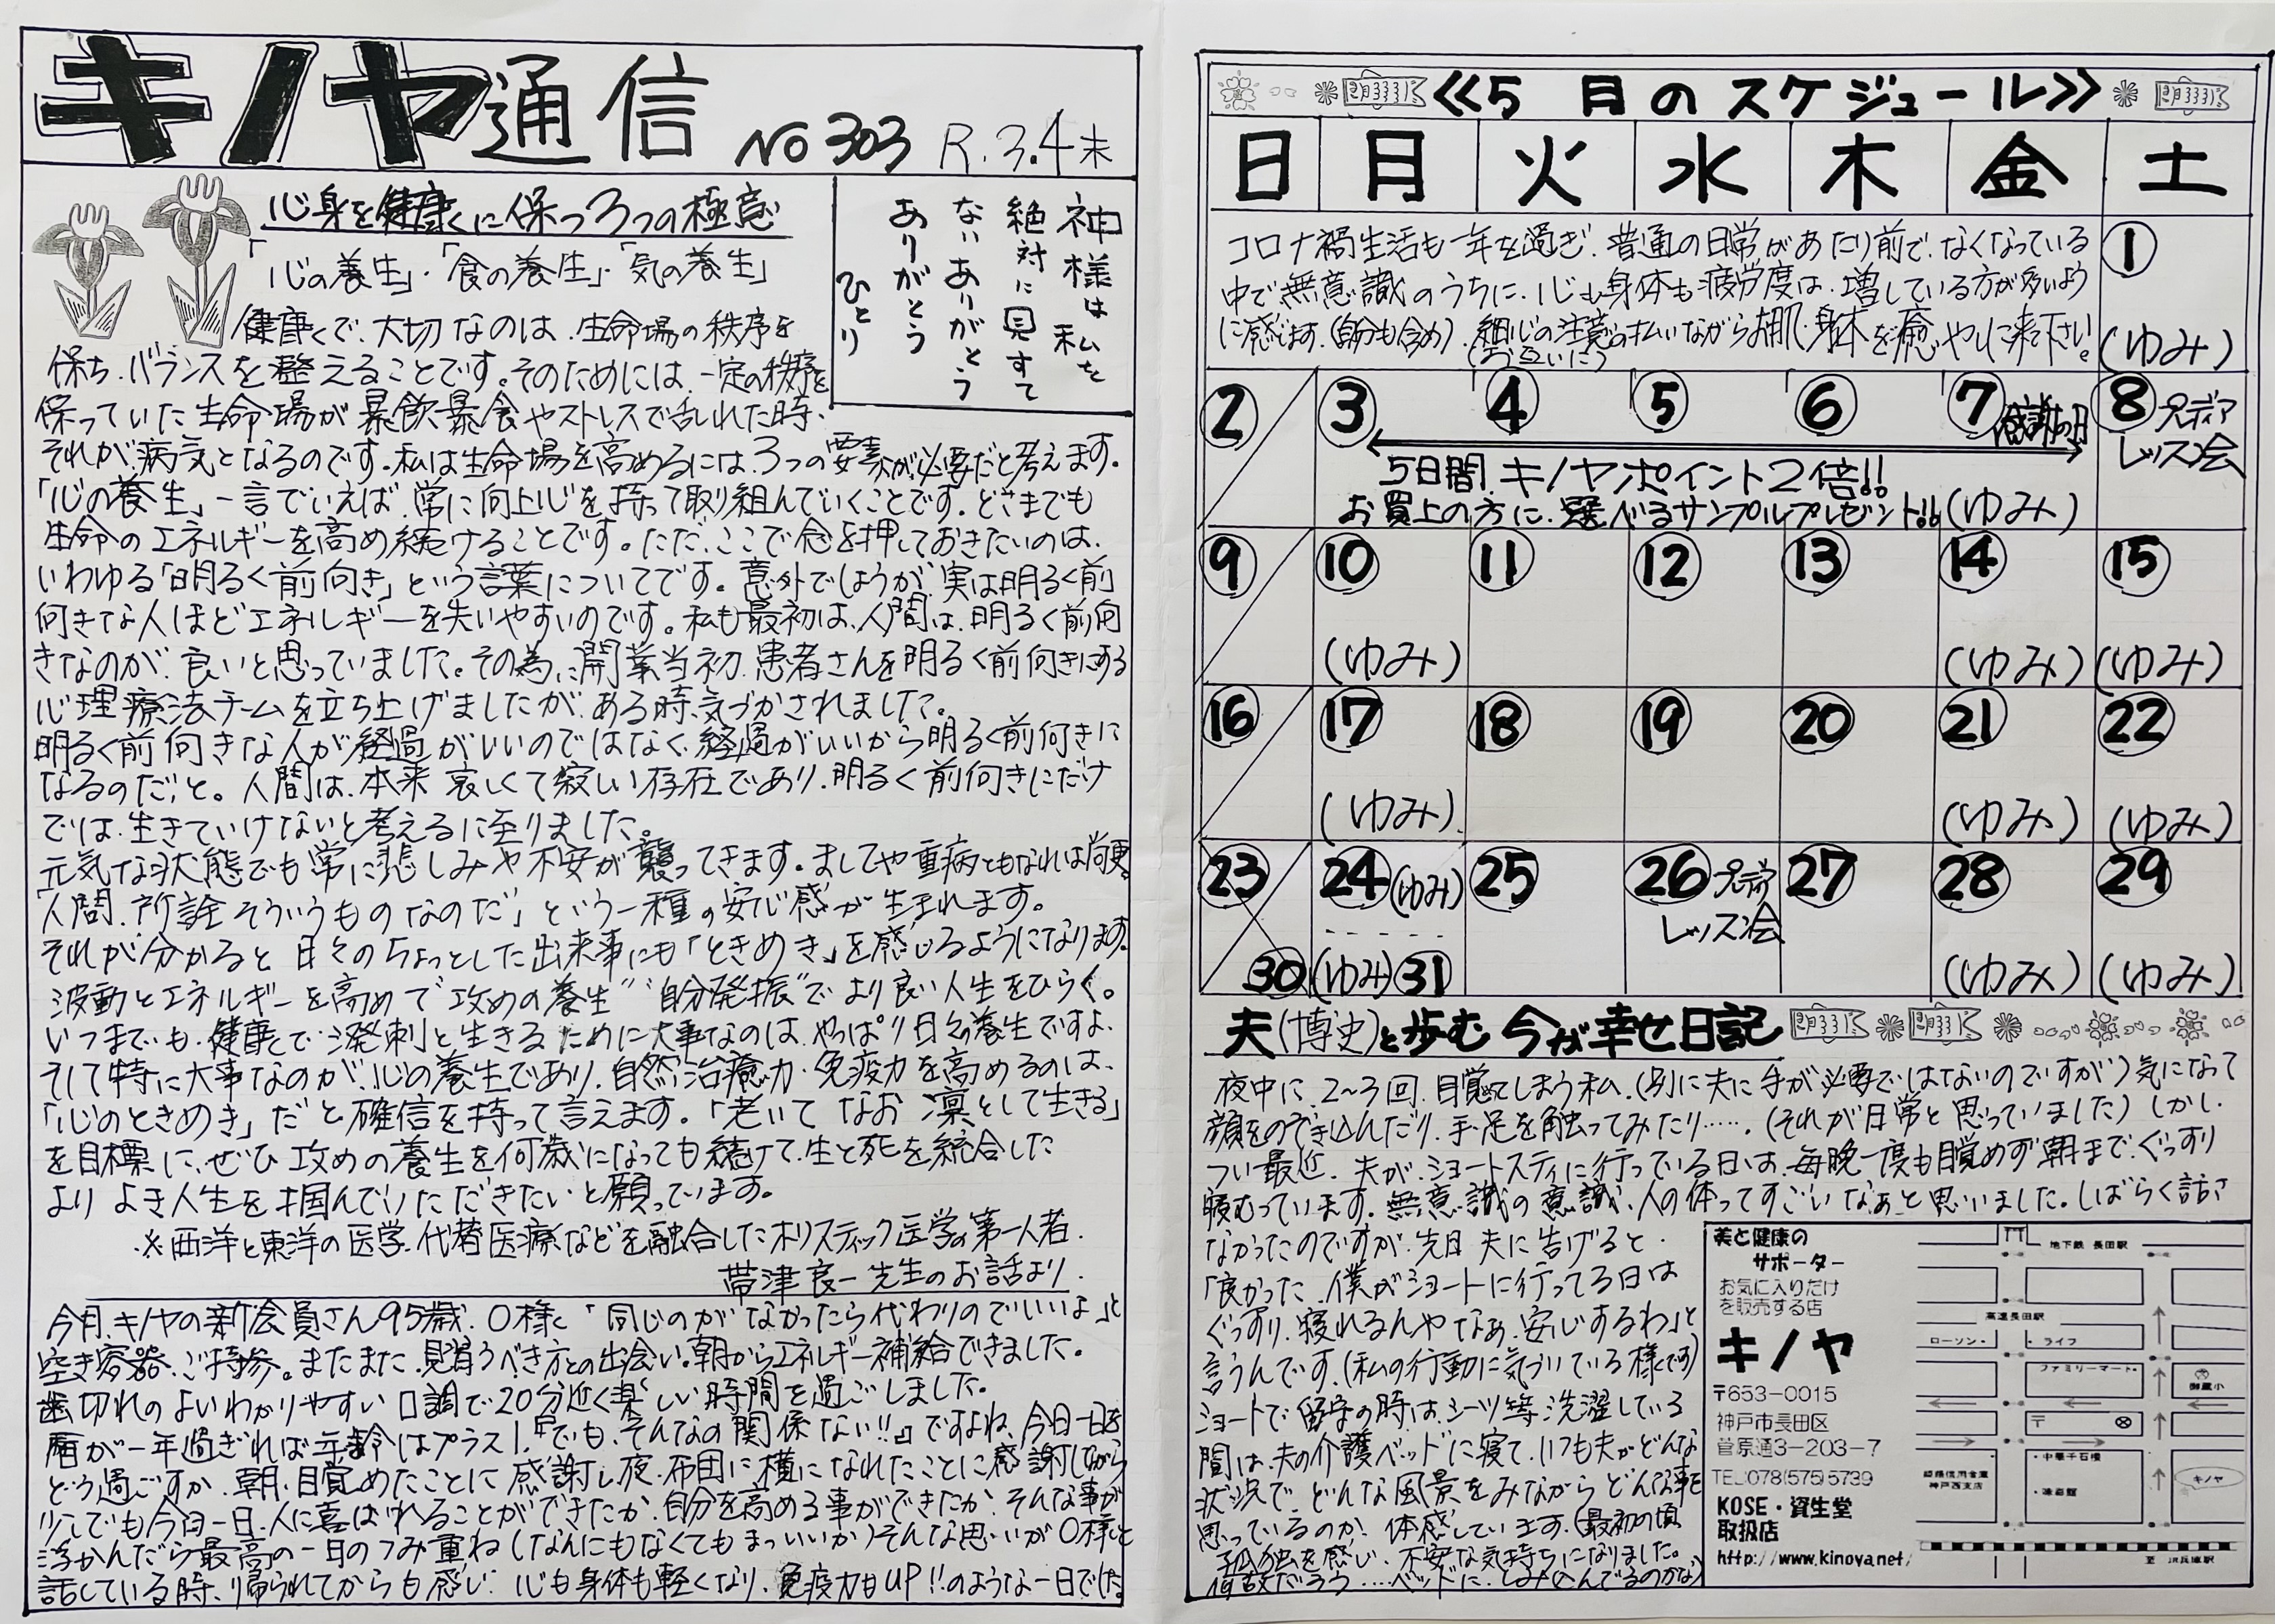 キノヤ通信 NO 303 R.3.4末
神様は私を
絶対に見すて
ないありがとう
ありがとう
ひとり
心身を健康に保つ3つの極意
「心の養生」・「食の養生」・「気の養生」
健康で、大切なのは、生命場の秩序を
保ち、バランスを整えることです。そのためには、一定の秩序を
保っていた生命場が暴飲暴食やストレスで乱れた時、
それが病気となるのです。私は生命場を高めるには、3つの要素が必要だと考えます。
「心の養生」一言でいえば、常に向上心を持って取り組んでいくことです。どこまでも
生命のエネルギーを高め続けることです。ただ、ここで念を押しておきたいのは、
いわゆる「明るく前向き」という言葉についてです。意外でしょうが、実は明るく前
向きな人ほどエネルギーを失いやすいのです。私も最初は、人間は、明るく前向
きなのが、良いと思っていました。その為、開業当初、患者さんを明るく前向きにする
心理療法チームを立ち上げましたが、ある時、気づかされました。
明るく前向きな人が経過がいいのではなく、経過がいいから明るく前向きに
なるのだ、と。人間は、本来哀しくて寂しい存在であり、明るく前向きにだけ
では、生きていけないと考えるに至りました。
元気な状態でも常に悲しみや不安が襲ってきます。ましてや重病ともなれば尚更。
「人間、所詮そういうものなのだ」という一種の安心感が生まれます。
それが分かると日々のちょっとした出来事にも「ときめき」を感じるようになります。
波動とエネルギーを高めて"攻めの養生""自分発振"でより良い人生をひらく。
いつまでも、健康で溌剌と生きるために大事なのは、やっぱり日々の養生ですよ、
そして特に大事なのが、心の養生であり、自然治癒力・免疫力を高めるのは、
「心のときめき」だと確信を持って言えます。「老いてなお凛として生きる」
を目標に、ぜひ攻めの養生を何歳になっても続けて、生と死を統合した
よりよき人生を掴んでいただきたいと願っています。
※西洋と東洋の医学、代替医療などを融合したホリスティック医学の第一人者、
帯津良一先生のお話より、
今月、キノヤの新会員さん95歳、O様、「同じのがなかったら代わりのでいいよ」と
空き容器、ご持参。またまた、見習うべき方との出会い。朝からエネルギー補給できました。
歯切れのよいわかりやすい口調で20分近く楽しい時間を過ごしました。
暦が一年過ぎれば年齢はプラス1、『でも、そんなの関係ない!!』ですよね、今日一日を
どう過ごすか、朝、目覚めたことに感謝し、夜、布団に横になれたことに感謝しながら
少しでも今日一日、人に喜ばれることができたか、自分を高める事ができたか、そんな事が
浮かんだら最高の一日のつみ重ね(なんにもなくてもまっいいか)そんな思いがO様と
話している時、帰られてからも感じ、心も身体も軽くなり、免疫力もUP!!のような一日でした。
≪5月のスケジュール≫
日 月 火 水 木 金 土
コロナ禍生活も一年を過ぎ、普通の日常があたり前で、なくなっている
中で無意識のうちに、心も身体も疲労度は、増している方が多いよう
に感じます。(自分も含め)、細心の注意の払いながらお肌、身体を癒やしに来て下さい。
(お互いに)
1 (ゆみ)
2 3 4 5 6 7 感謝の日 8 プレディア
レッスン会
5日間、キノヤポイント2倍!!
お買上の方に、選べるサンプルプレゼント!! (ゆみ)
9 10 11 12 13 14 15
(ゆみ) (ゆみ) (ゆみ)
16 17 18 19 20 21 22
(ゆみ) (ゆみ) (ゆみ)
23 24 (ゆみ) 25 26 プレディア 27 28 29
レッスン会
30 (ゆみ) 31 (ゆみ) (ゆみ)
夫(博史)と歩む 今が幸せ日記
夜中に、2~3回、目覚めてしまう私、(別に夫に手が必要ではないのですが)気になって
顔をのぞき込んだり、手、足を触ってみたり……、(それが日常と思っていました)しかし、
つい最近、夫が、ショートスティに行っている日は、毎晩一度も目覚めず朝まで、ぐっすり
寝むっています。無意識の意識、人の体ってすごいなぁと思いました。しばらく話さ
なかったのですが、先日、夫に告げると、
「良かった、僕がショートに行ってる日は
ぐっすり、寝れるんやなぁ、安心するわ」と
言うんです。(私の行動に気づいている様です)
ショートで留守の時は、シーツ等、洗濯している
間は、夫の介護ベッドに寝て、いつも夫がどんな
状況で、どんな風景をみながらどんな事を
思っているのか、体感しています。(最初の頃
孤独を感じ、不安な気持ちになりました。
何故だろう……ベッドに、しみ込んでるのかな)
美と健康の
サポーター
お気に入りだけ
を販売する店
キノヤ
〒653-0015
神戸市長田区
菅原通3-203-7
TEL:078(575)5739
KOSE・資生堂
取扱店
http://www.kinoya.net/
地下鉄 長田駅
高速長田駅
ローソン
ライフ
ファミリーマート
御蔵小
〒
中華千石楼
神戸西支店
キノヤ
至 JR兵庫駅